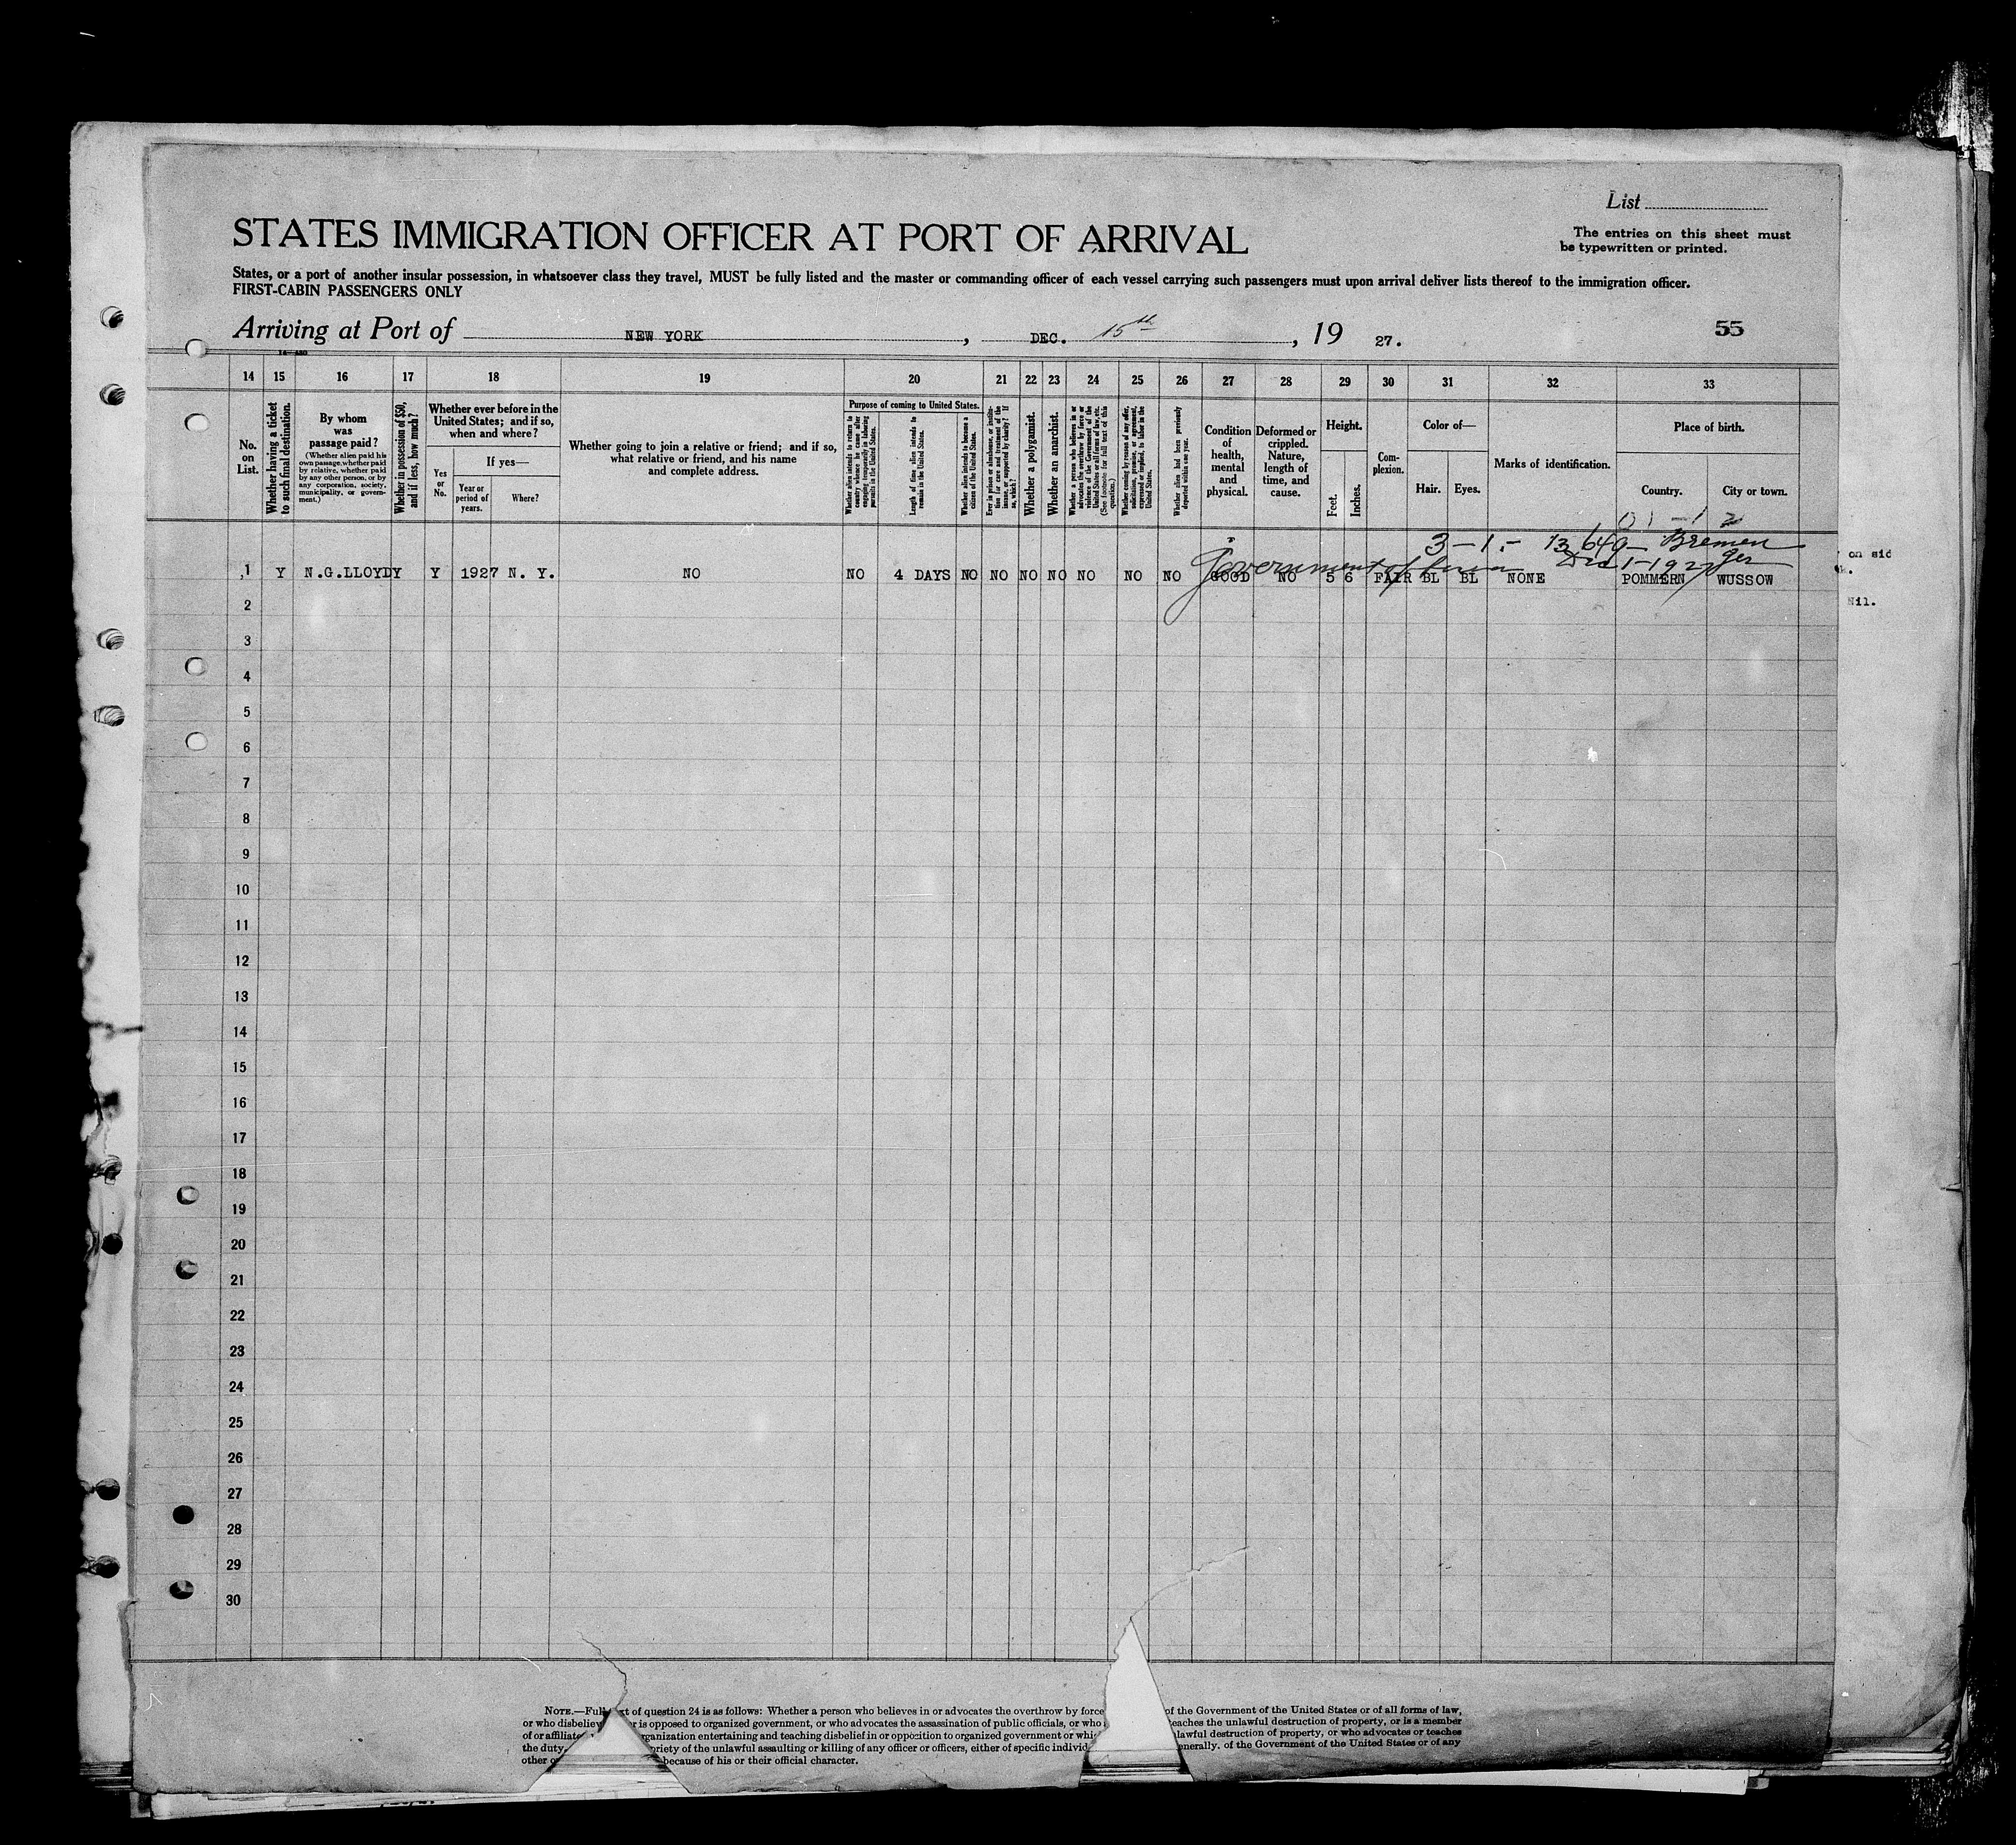 List
STATES IMMIGRATION OFFICER AT PORT OF ARRIVAL
The entries on this sheet must
be typewritten or printed.
States, or a port of another insular possession, in whatsoever class they travel, MUST be fully listed and the master or commanding officer of each vessel carrying such passengers must upon arrival deliver lists thereof to the immigration officer.
FIRST-CABIN PASSENGERS ONLY
Arriving at Port of NEW YORK, DEC. 15th, 19 27.
55
14 15 16 17 18 19 20 21 22 23 24 25 26 27 28 29 30 31 32 33
No. on List.
Whether having a ticket to such final destination.
By whom was passage paid?
(Whether alien paid his own passage, whether paid by relative, whether paid by any other person, or by any corporation, society, municipality, or government.)
Whether in possession of $50, and if less, how much?
Whether ever before in the United States; and if so, when and where?
Yes or No.
If yes—
Year or period of years.
Where?
Whether going to join a relative or friend; and if so, what relative or friend, and his name and complete address.
Purpose of coming to United States.
Whether alien intends to return to country whence he came after engaging temporarily in laboring pursuits in the United States.
Length of time alien intends to remain in the United States.
Whether alien intends to become a citizen of the United States.
Ever in prison or almshouse, or institution for care and treatment of the insane, or supported by charity? If so, which?
Whether a polygamist.
Whether an anarchist.
Whether a person who believes in or advocates the overthrow by force or violence of the Government of the United States or all forms of law, etc. (See footnote for full text of this question.)
Whether coming by reason of any offer, solicitation, promise, or agreement, expressed or implied, to labor in the United States.
Whether alien had been previously deported within one year.
Condition of health, mental and physical.
Deformed or crippled. Nature, length of time, and cause.
Height.
Feet.
Inches.
Complexion.
Color of—
Hair.
Eyes.
Marks of identification.
Place of birth.
Country.
City or town.
3-1- 13649- Bremen
Government of Dec 1-1927 Ger
1 Y N.G.LLOYD Y Y 1927 N. Y. NO NO 4 DAYS NO NO NO NO NO NO NO GOOD NO 5 6 FAIR BL BL NONE POMMERN WUSSOW
on sid
Nil.
2
3
4
5
6
7
8
9
10
11
12
13
14
15
16
17
18
19
20
21
22
23
24
25
26
27
28
29
30
NOTE.—Full of question 24 is as follows: Whether a person who believes in or advocates the overthrow by force of the Government of the United States or of all forms of law,
or who is opposed to organized government, or who advocates the assassination of public officials, or who teaches the unlawful destruction of property, or is a member
of or organization entertaining and teaching disbelief in or opposition to organized government or destruction of property, or who advocates or teaches
the duty, of the unlawful assaulting or killing of any officer or officers, either of specific of the Government of the United States or of any
other because of his or their official character.